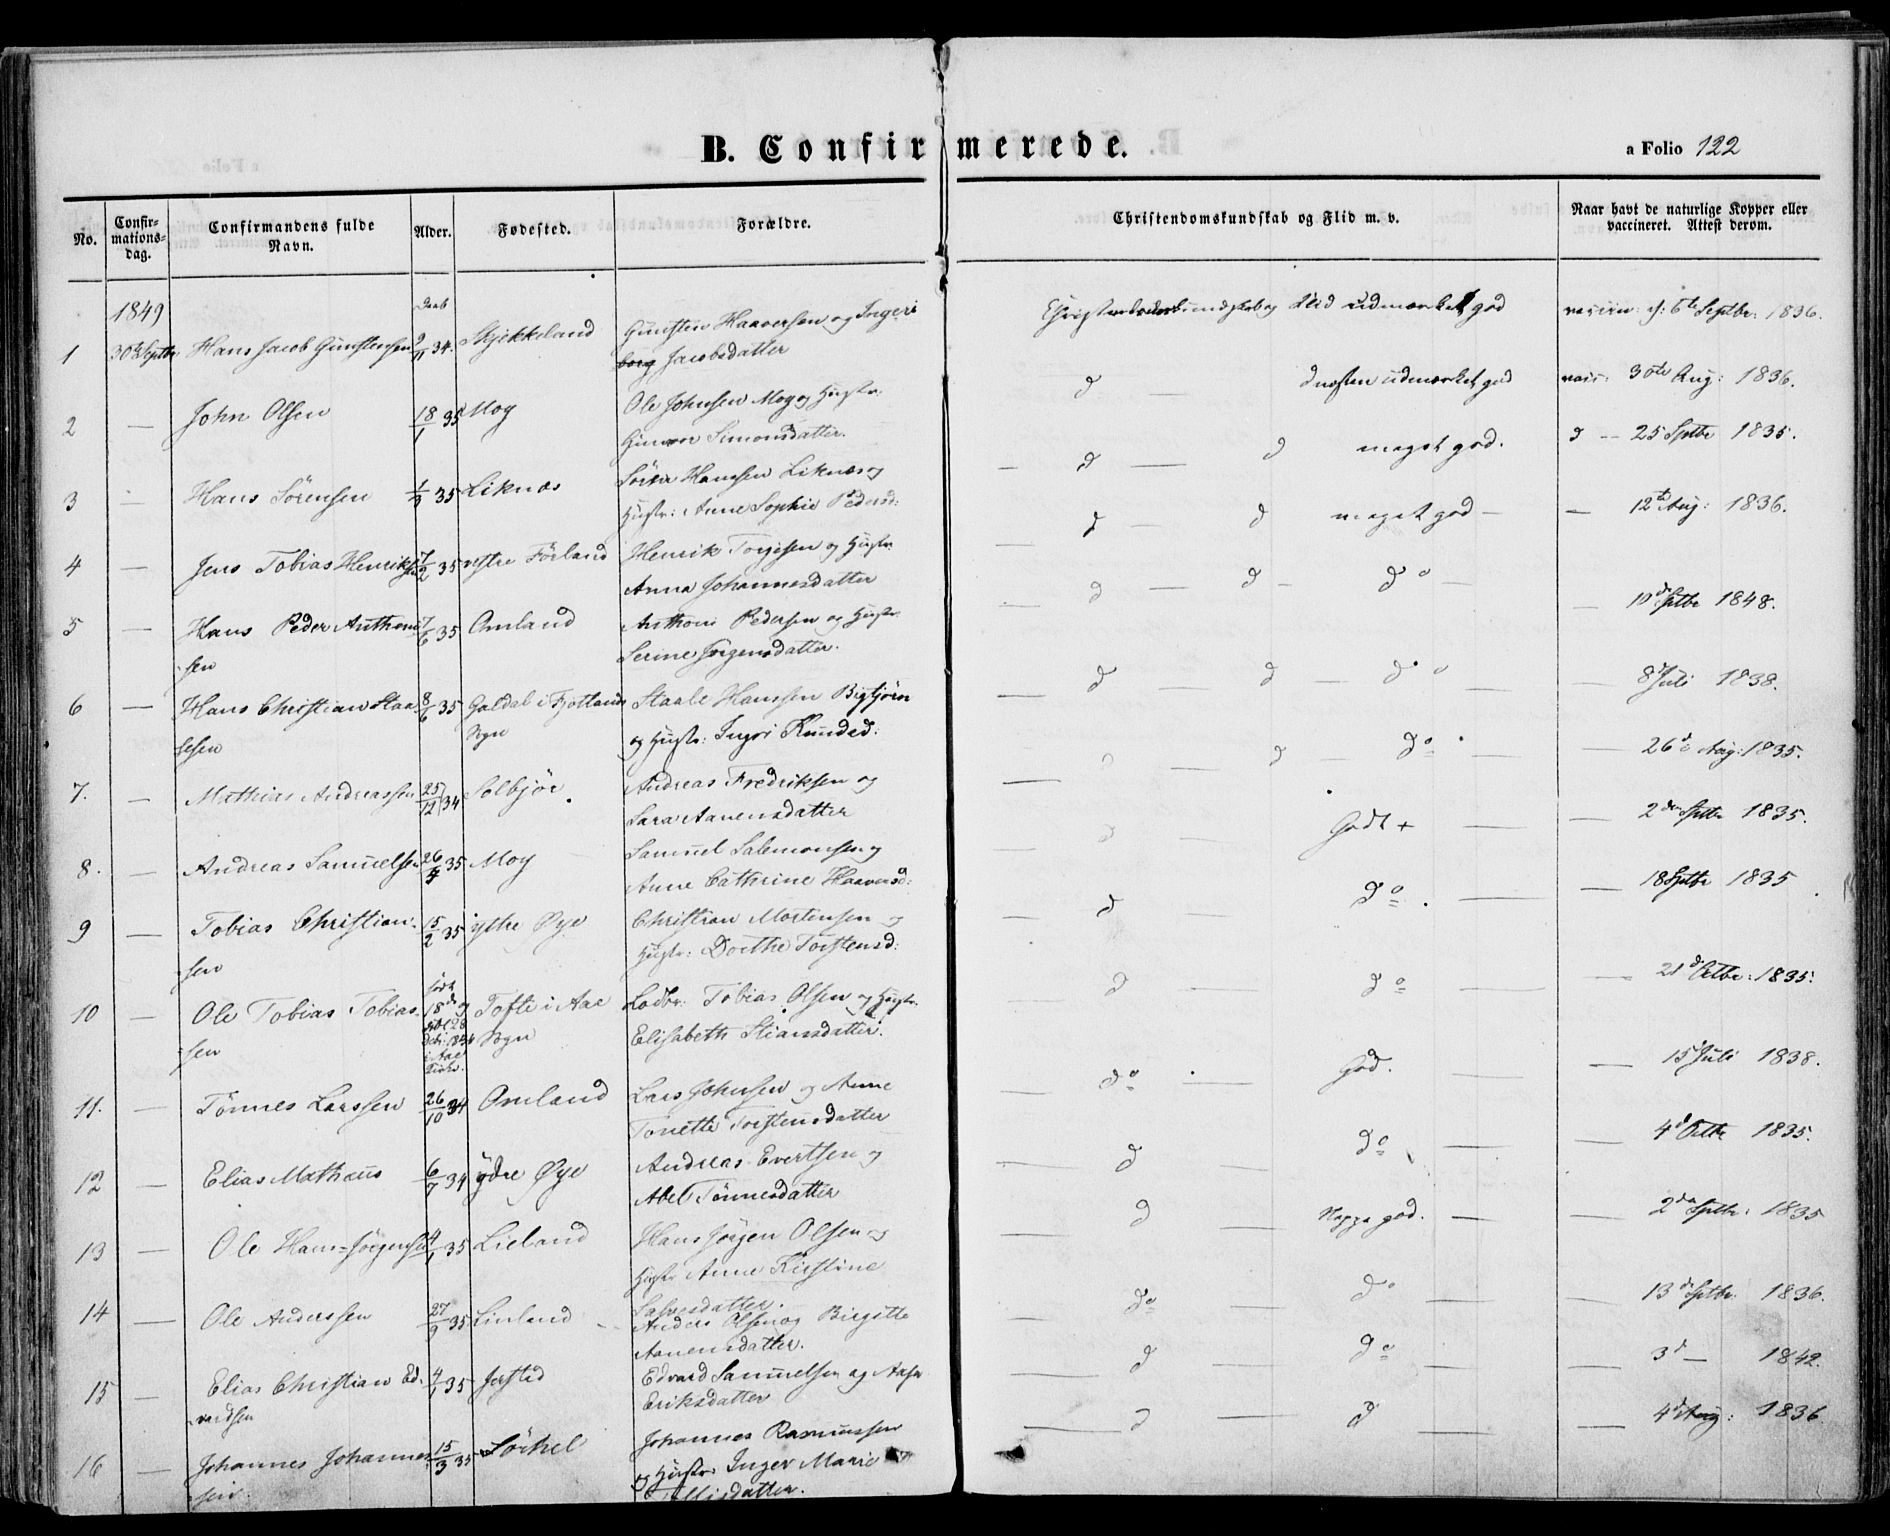 B. Confirmerede.
a Folio 122
No.
Confir-
mations-
dag.
Confirmandens fulde
Navn.
Alder.
Fødested.
Forældre.
Christendomskundskab og Flid m. v.
Naar havt de naturlige Kopper eller
vaccineret. Attest derom.
1849
1 30te Septbr Hans Jacob Gunstensen 34. Gunsten Haaversen og Inger
Jacobsdatter
Flid udmærket god 6te Septbr: 1836.
2 — John Olsen 18/1 35 Moy Ole Johnsen Moy og Hustr:
Simonsdatter.
d næsten udmærket god 30te Aug: 1836.
3 — Hans Sørensen 35 Liknæs Hansen Liknæs og
Hustr: Anne Sophie Pedersd:
— d — d meget god. d — 25 Sptbr 1835.
4 — Jens Tobias Henrik- 7/2 35 Førland Henrik og Hustr
sen Anna Johannesdatter
d — d meget god — — 12te Aug: 1836.
5 — Hans Peder Anthoni 7/6 35 Omland Anthoni Pedersen og Hustr
sen Serine Jørgensdatter.
— d — d — do — — 10de Sptbr 1848.
6 — Hans Christian Staa 8/6 35 Galdal i Fjotlands Staale Hanssen
lesen Sogn og Hustr: Knudsd:
— d — d — do — — 8d Juli 1838.
7. — Mathias Andreassen 25/12 34 Solbjør Andreas Fredriksen og
Sara Aanensdatter
— d — d — do — — 26de Aug: 1835.
8. — Andreas Samuelsen 35 Moy Samuel Salemonsen og
Anne Cathrine Haaversd:
— d — Godt + — — 2den Sptbr 1835.
9 — Tobias Christian- 15/2 35 ystre Øye Christian Mortensen og
sen Hustr: Dorthe Torstensd:
— d — do. — — 18 Sptbr 1835
10 — Ole Tobias Tobias- født 18de og Tofte i Aae Tobias Olsen og Hustr
sen Sogn Elisabeth Stiansdatter.
— d — do — — 21d Octbr: 1835.
11. — Tønnes Larssen 26/10 34 Omland Lars Johnsen og Anne
Tonette Torstensdatter
— do God. — — 15d Juli 1838.
12 — Elias Mathæus 6/7 34 ydre Øye Andreas Evertsen og
Abel Tønnesdatter
— d — do — — 4d Octbr 1835.
13 — Ole Hans-Jørgensen 4/1 35 Lieland Hans Jørgen Olsen og
Hustr Anne Kirstine
Salvesdatter.
— d — god. — — 2den Sptbr. 1835
14 — Ole Anderssen 35 Linland Anders Olsen og Birgitte
Aanensdatter.
— do — do — — 13de Sptbr 1836.
15 — Elias Christian Ed- 4/1 35 Edvard Samuelsen og
vardsen Eriksdatter
— d — do — — 3d — 1842.
16 — Johannes Johannes- 15/3 35 Johannes Rasmussen
sen. og Hustr: Inger Marie
— d — d — — 4d Aug: 1836